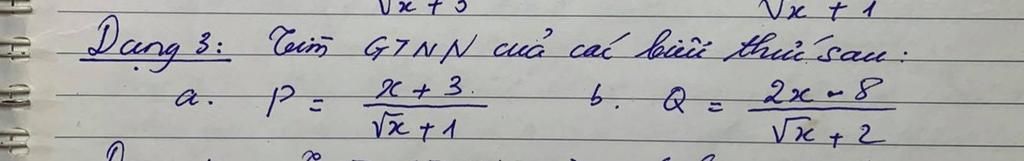 √x + 3 √x + 1
Dạng 3: Tìm GTNN của các biểu thức sau:
a. P = (x + 3)/(√x + 1) b. Q = (2x - 8)/(√x + 2)